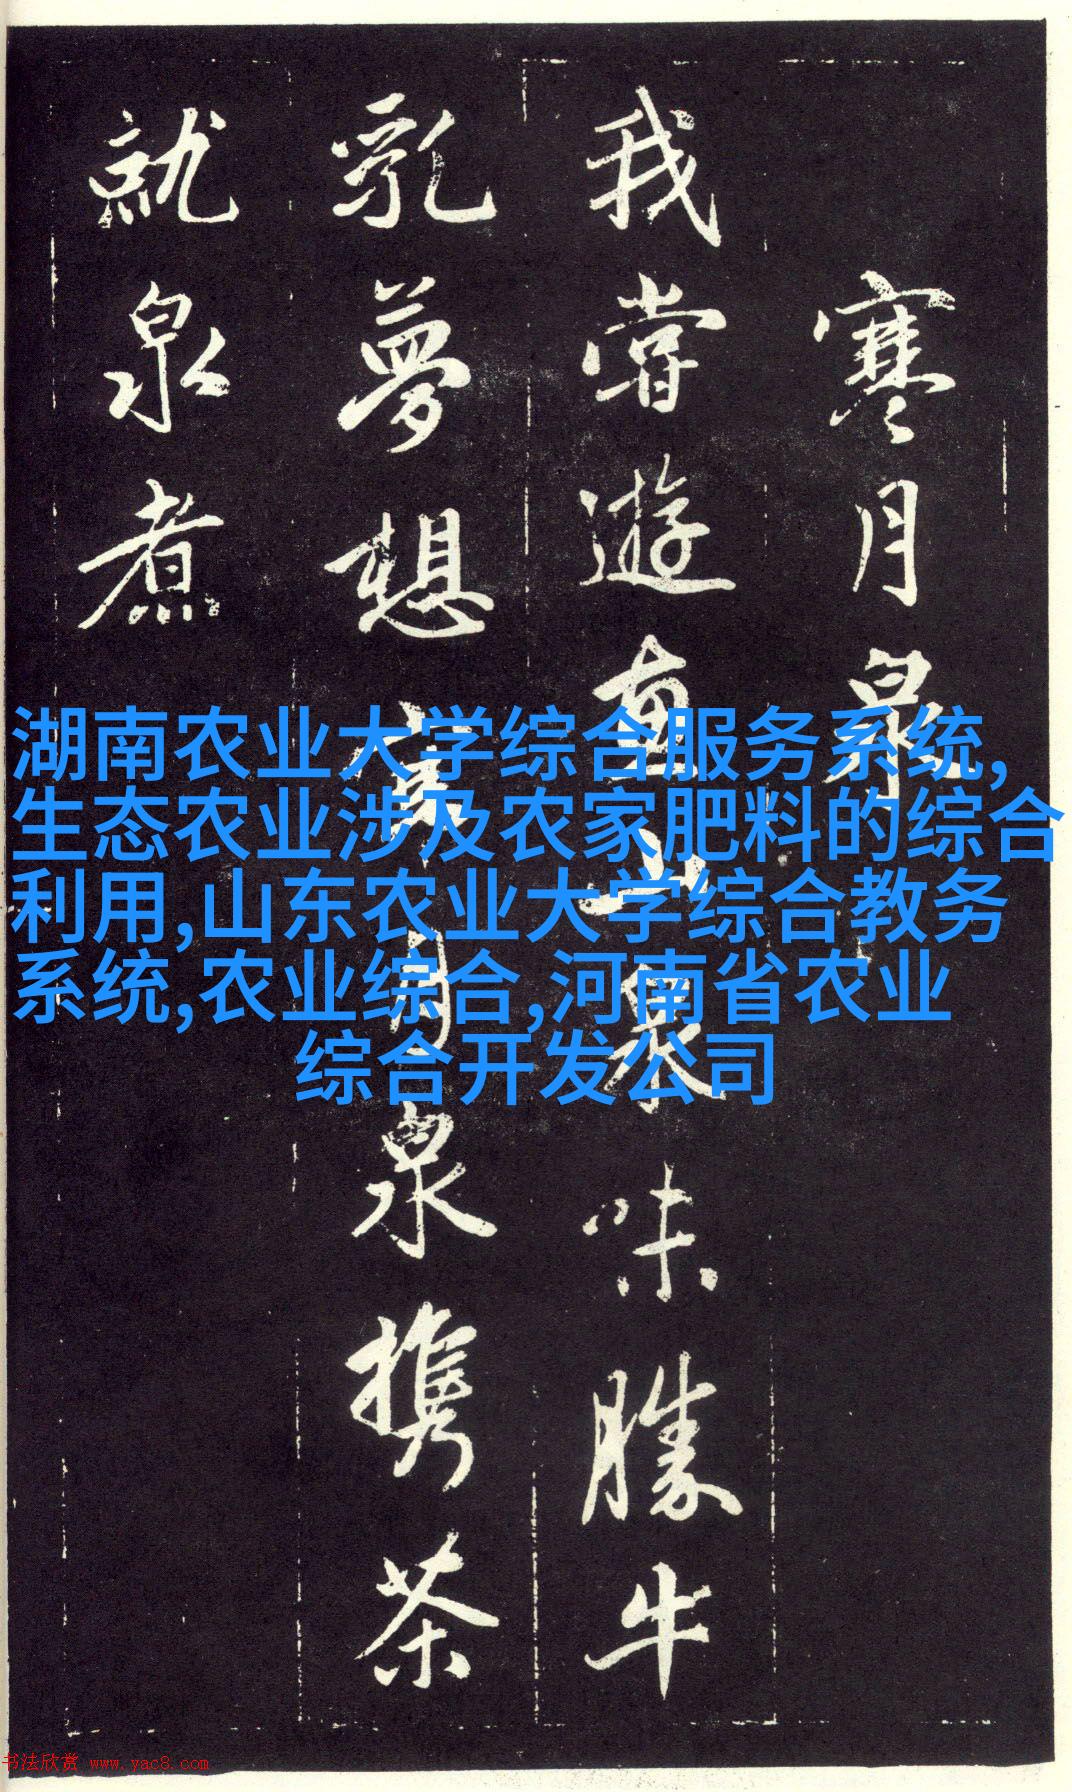 寒月泉
我嘗遊惠山泉味勝牛
乳夢想寒月泉携茶
就泉煮
湖南农业大学综合服务系统,
生态农业涉及农家肥料的综合
利用,山东农业大学综合教务
系统,农业综合,河南省农业
综合开发公司
书法欣赏 www.yac8.com